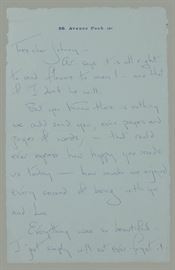 88, Avenue Foch
Très cher Johnny –
Air says it is all right
to send flowers to men! – and that
if I don't he will.
But you know there is nothing
we could send you, even pages and
pages of words, – that could
ever express how happy you made
us today – how much we enjoyed
every second of being with you
and
Everything was so beautiful –
I just simply will not ever forget it